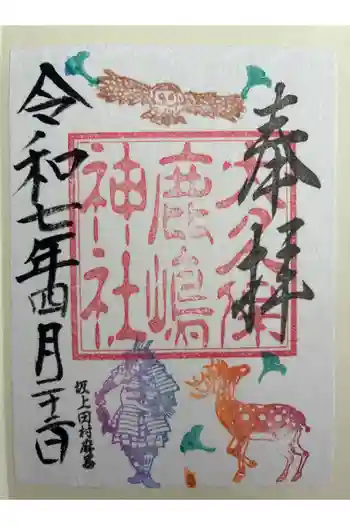 奉拝
大久保
鹿嶋
神社
令和七年四月二十二日
坂上田村麻呂